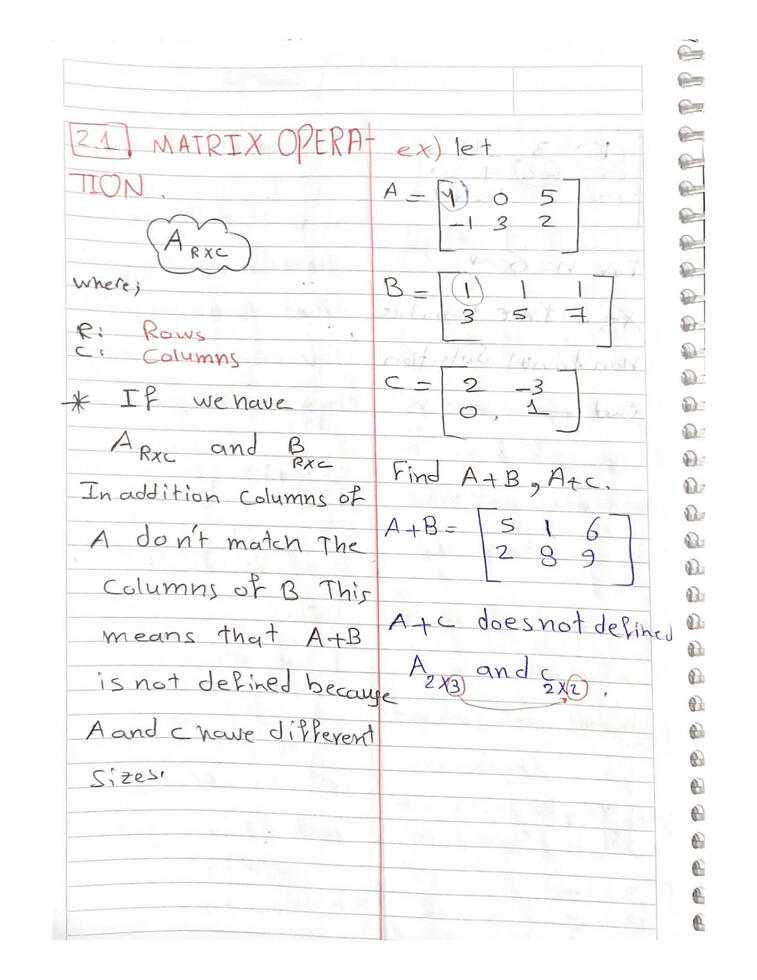 2.1 MATRIX OPERA-
TION.
A RXC
where;
R: Rows
C: Columns
* If we have
A RXC and B RXC
In addition Columns of
A don't match The
Columns of B This
means that A+B
is not defined because
A and C have different
Sizes.
ex) let
A = [4 0 5
-1 3 2]
B = [1 1 1
3 5 7]
C = [2 -3
0, 1]
Find A+B, A+C.
A+B = [5 1 6
2 8 9]
A+C does not defined
A 2X3 and C 2X2.